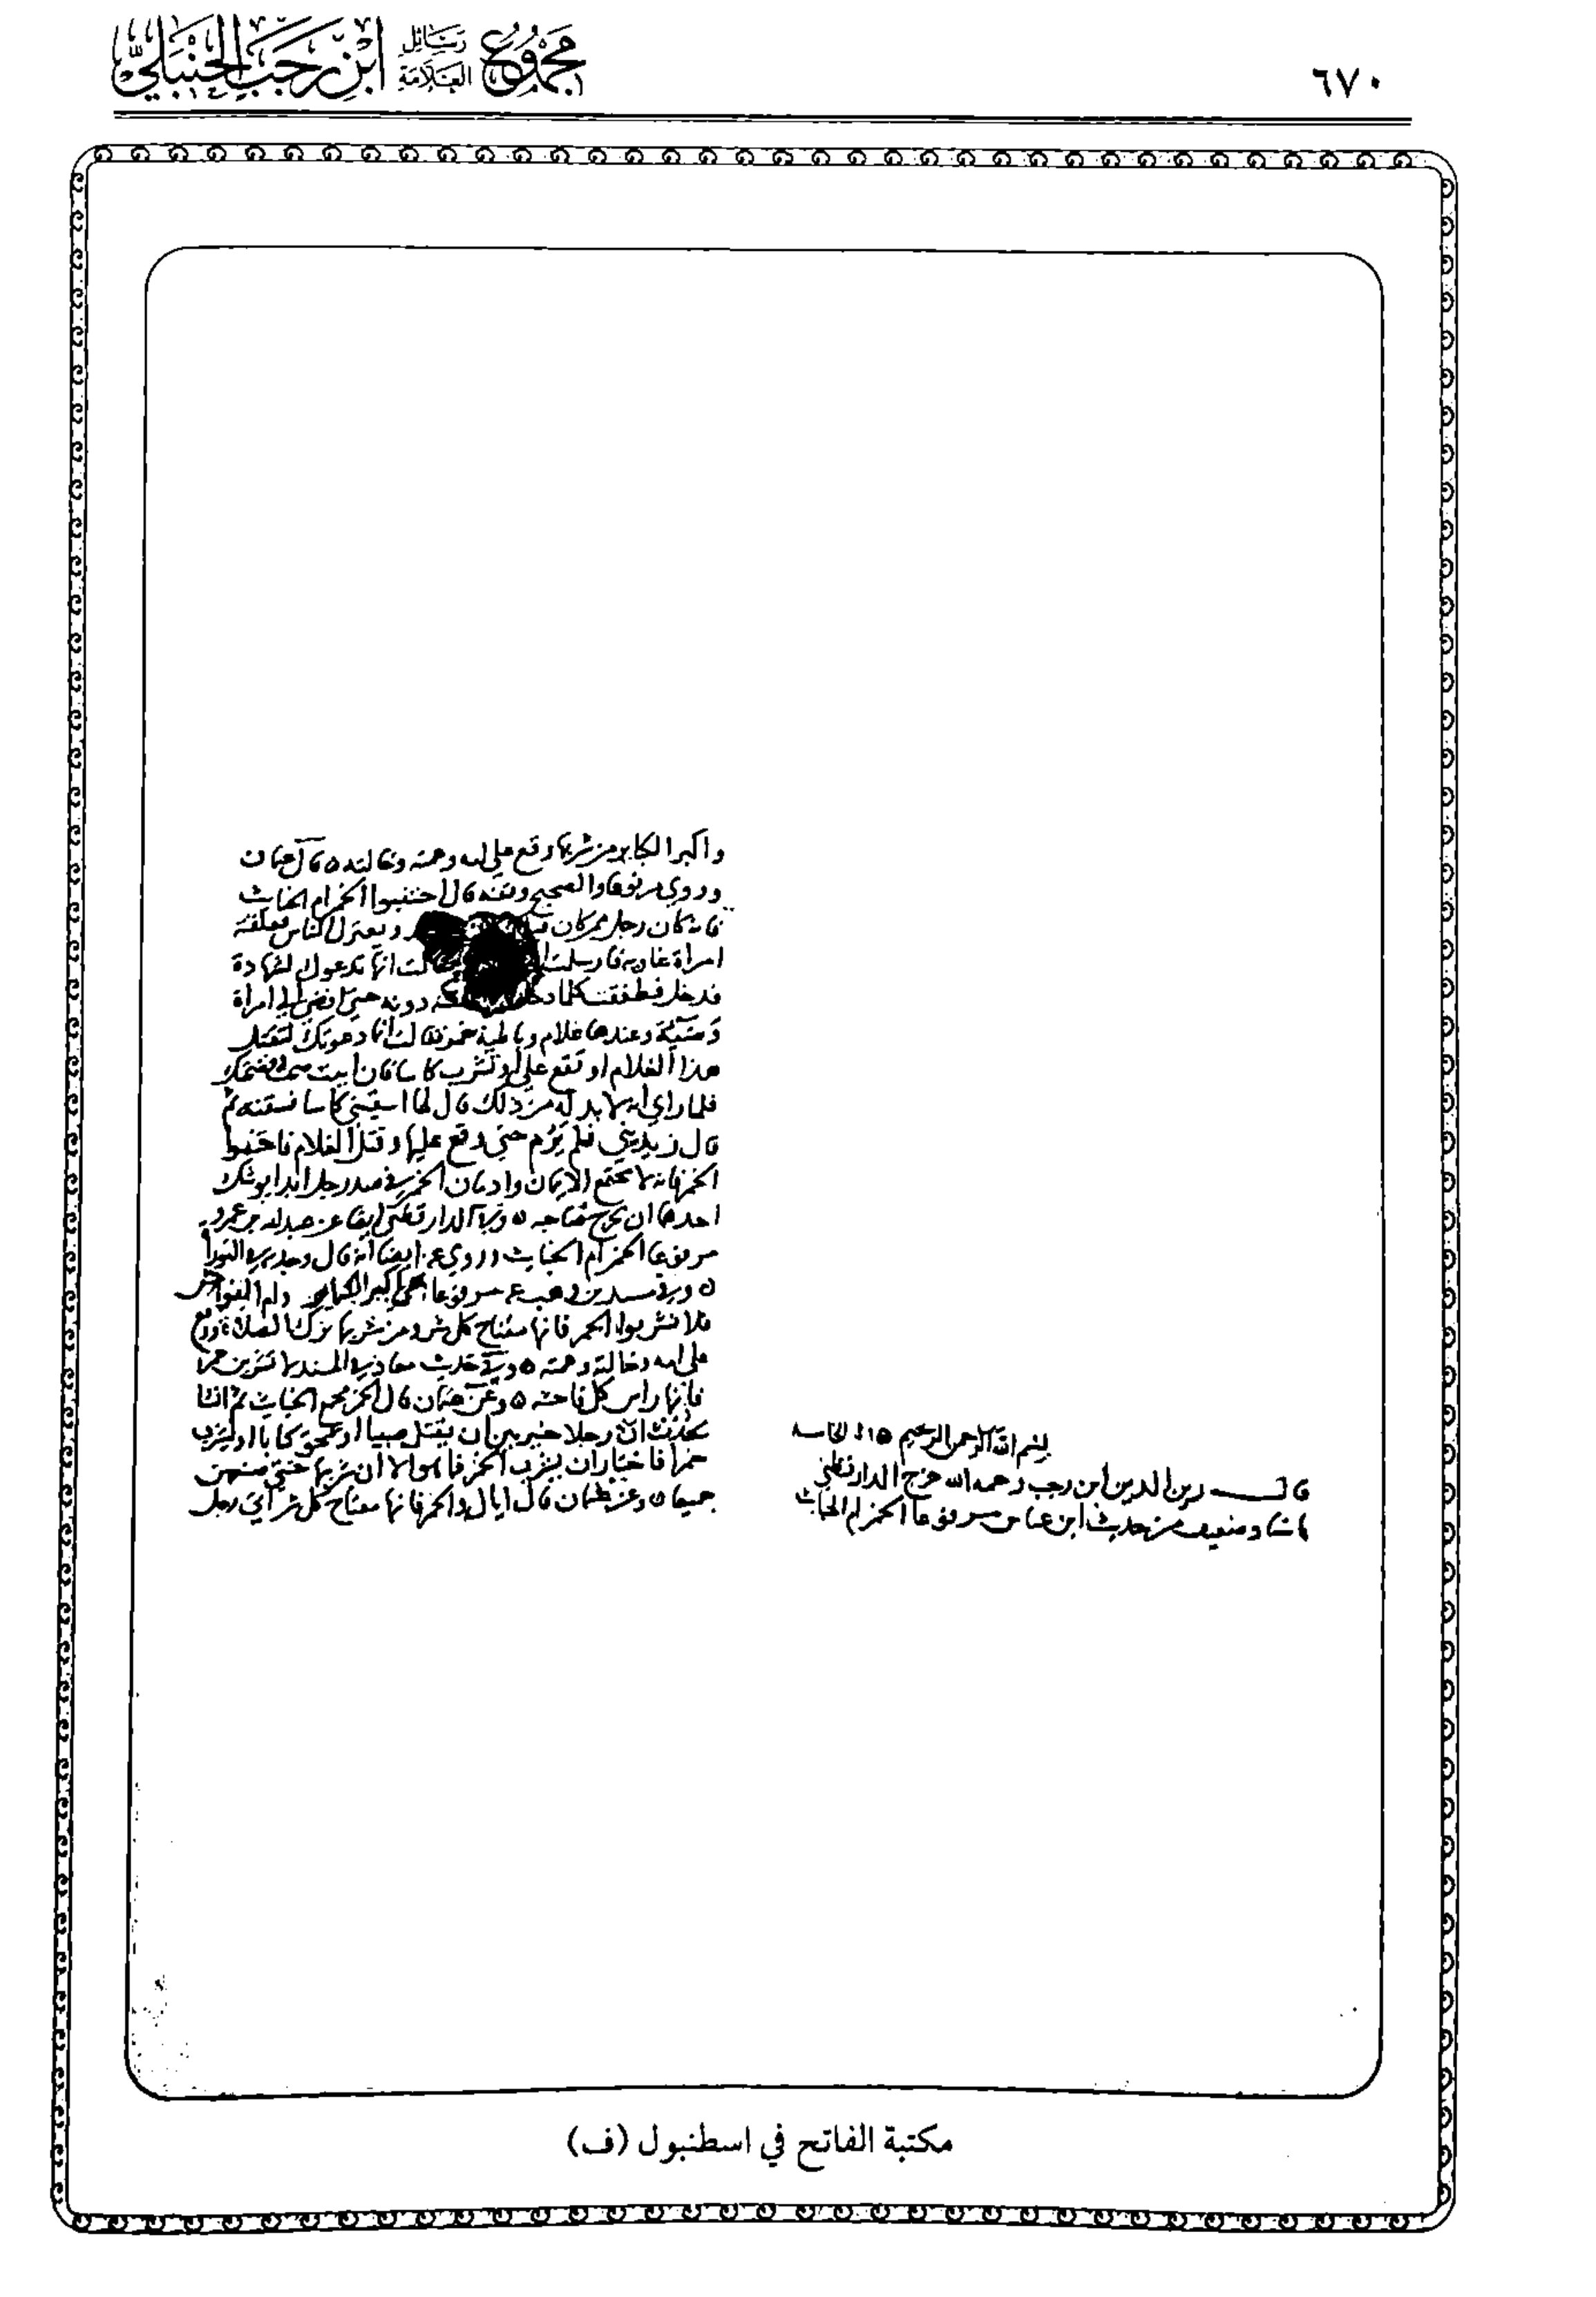 ٦٧٠
مجموع رسائل العلامة ابن رجب الحنبلي
بسم الله الرحمن الرحيم
قال زين الدين ابن رجب رحمه الله خرج الدارقطني
باسناد ضعيف من حديث ابن عباس مرفوعا الخمر ام الخبائث
واكبر الكبائر من شربها وقع على امه وعمته وخالته ٥ قال عثمان
وروي مرفوعا والصحيح وقفه قال اجتنبوا الخمر ام الخبائث
فانه كان رجل ممن كان ويعتزل الناس فعلقته
امراة غاويه فارسلت فقالت انها تدعوك لشهادة
فدخل فطفقت كلما دخل دونه حتى افضى الى امراة
وضيئة وعندها غلام وباطية خمر فقالت انا دعوتك لتقتل
هذا الغلام او تقع علي او تشرب كاسا فان ابيت صحت وفضحتك
فلما راى انه لا بد له من ذلك قال لها اسقيني كاسا فسقته ثم
قال زيديني فلم يرم حتى وقع عليها وقتل الغلام فاجتنبوا
الخمر فانه لا يجتمع الايمان وادمان الخمر في صدر رجل ابدا يوشك
احدهما ان يخرج صاحبه ٥ وخرج الدارقطني ايضا عن عبد الله بن عمرو
مرفوعا الخمر ام الخبائث وروي عنه ايضا انه قال وجد في التوراة
٥ وفي مسند ابن وهب عنه مرفوعا هي اكبر الكبائر وام الفواحش
فلا تشربوا الخمر فانها مفتاح كل شر ومن شربها ترك الصلاة ووقع
على امه وخالته وعمته ٥ وفي حديث معاذ في المسند لا تشربن خمرا
فانها راس كل فاحشة ٥ وعن عثمان قال الخمر مجمع الخبائث ثم انشا
يحدث ان رجلا خير بين ان يقتل صبيا او يمحق كتابا او يشرب
خمرا فاختار ان يشرب الخمر فما هو الا ان شربها حتى صنعهن
جميعا ٥ وعن عثمان قال اياك والخمر فانها مفتاح كل شر اتي رجل
مكتبة الفاتح في اسطنبول (ف)